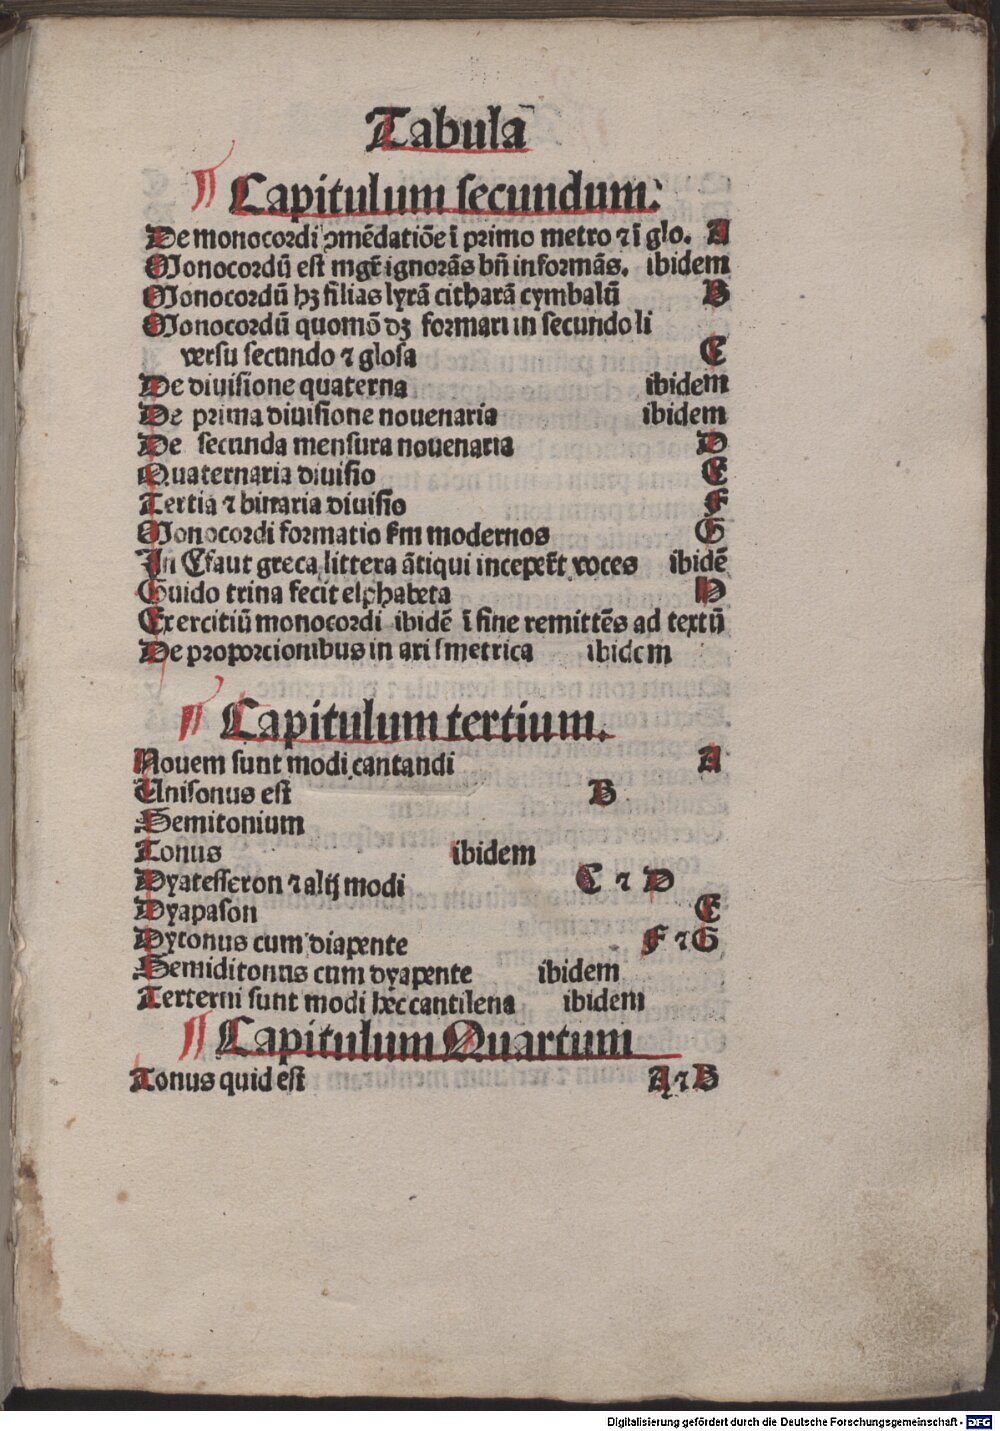 Tabula
¶ Capitulum secundum:
De monocordi ↄmēdatiōe ī primo metro ⁊ ī glo. A
Monocordū est mgr̄ ignorās bn̄ informās. ibidem
Monocordū hꝫ filias lyrā citharā cymbalū B
Monocordū quomō dꝫ formari in secundo li
versu secundo ⁊ glosa C
De diuisione quaterna ibidem
De prima diuisione nouenaria ibidem
De secunda mensura nouenaria D
Quaternaria diuisio E
Tertia ⁊ binaria diuisio F
Monocordi formatio ẜm modernos G
In Cfaut greca littera ātiqui inceper̄t voces ibidē
Guido trina fecit elphabeta H
Exercitiū monocordi ibidē ī fine remittēs ad textū
De proporcionibus in arismetrica ibidem
¶ Capitulum tertium.
Nouem sunt modi cantandi A
Unisonus est B
Semitonium
Tonus ibidem
Dyatesseron ⁊ alij modi C ⁊ D
Dyapason E
Dytonus cum diapente F ⁊ G
Semiditonus cum dyapente ibidem
Terterni sunt modi hec cantilena ibidem
¶ Capitulum Quartum
Tonus quid est A ⁊ B
Digitalisierung gefördert durch die Deutsche Forschungsgemeinschaft - DFG